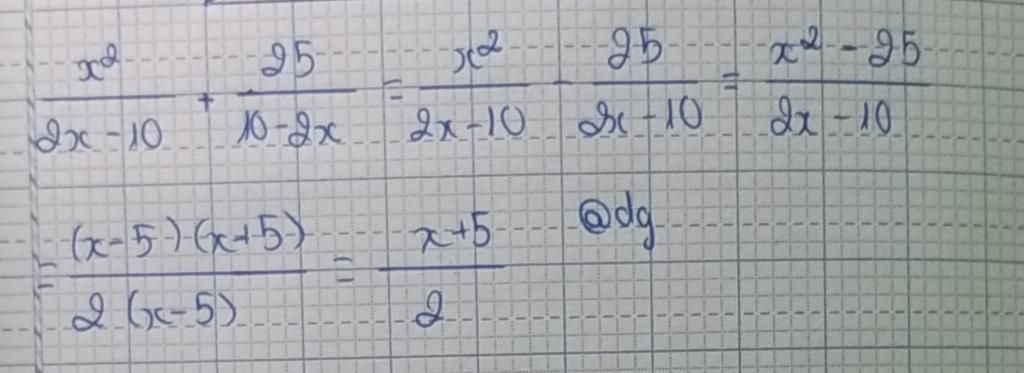 x²/(2x-10) + 25/(10-2x) = x²/(2x-10) - 25/(2x-10) = (x²-25)/(2x-10)
= (x-5)(x+5)/(2(x-5)) = (x+5)/2 @dg